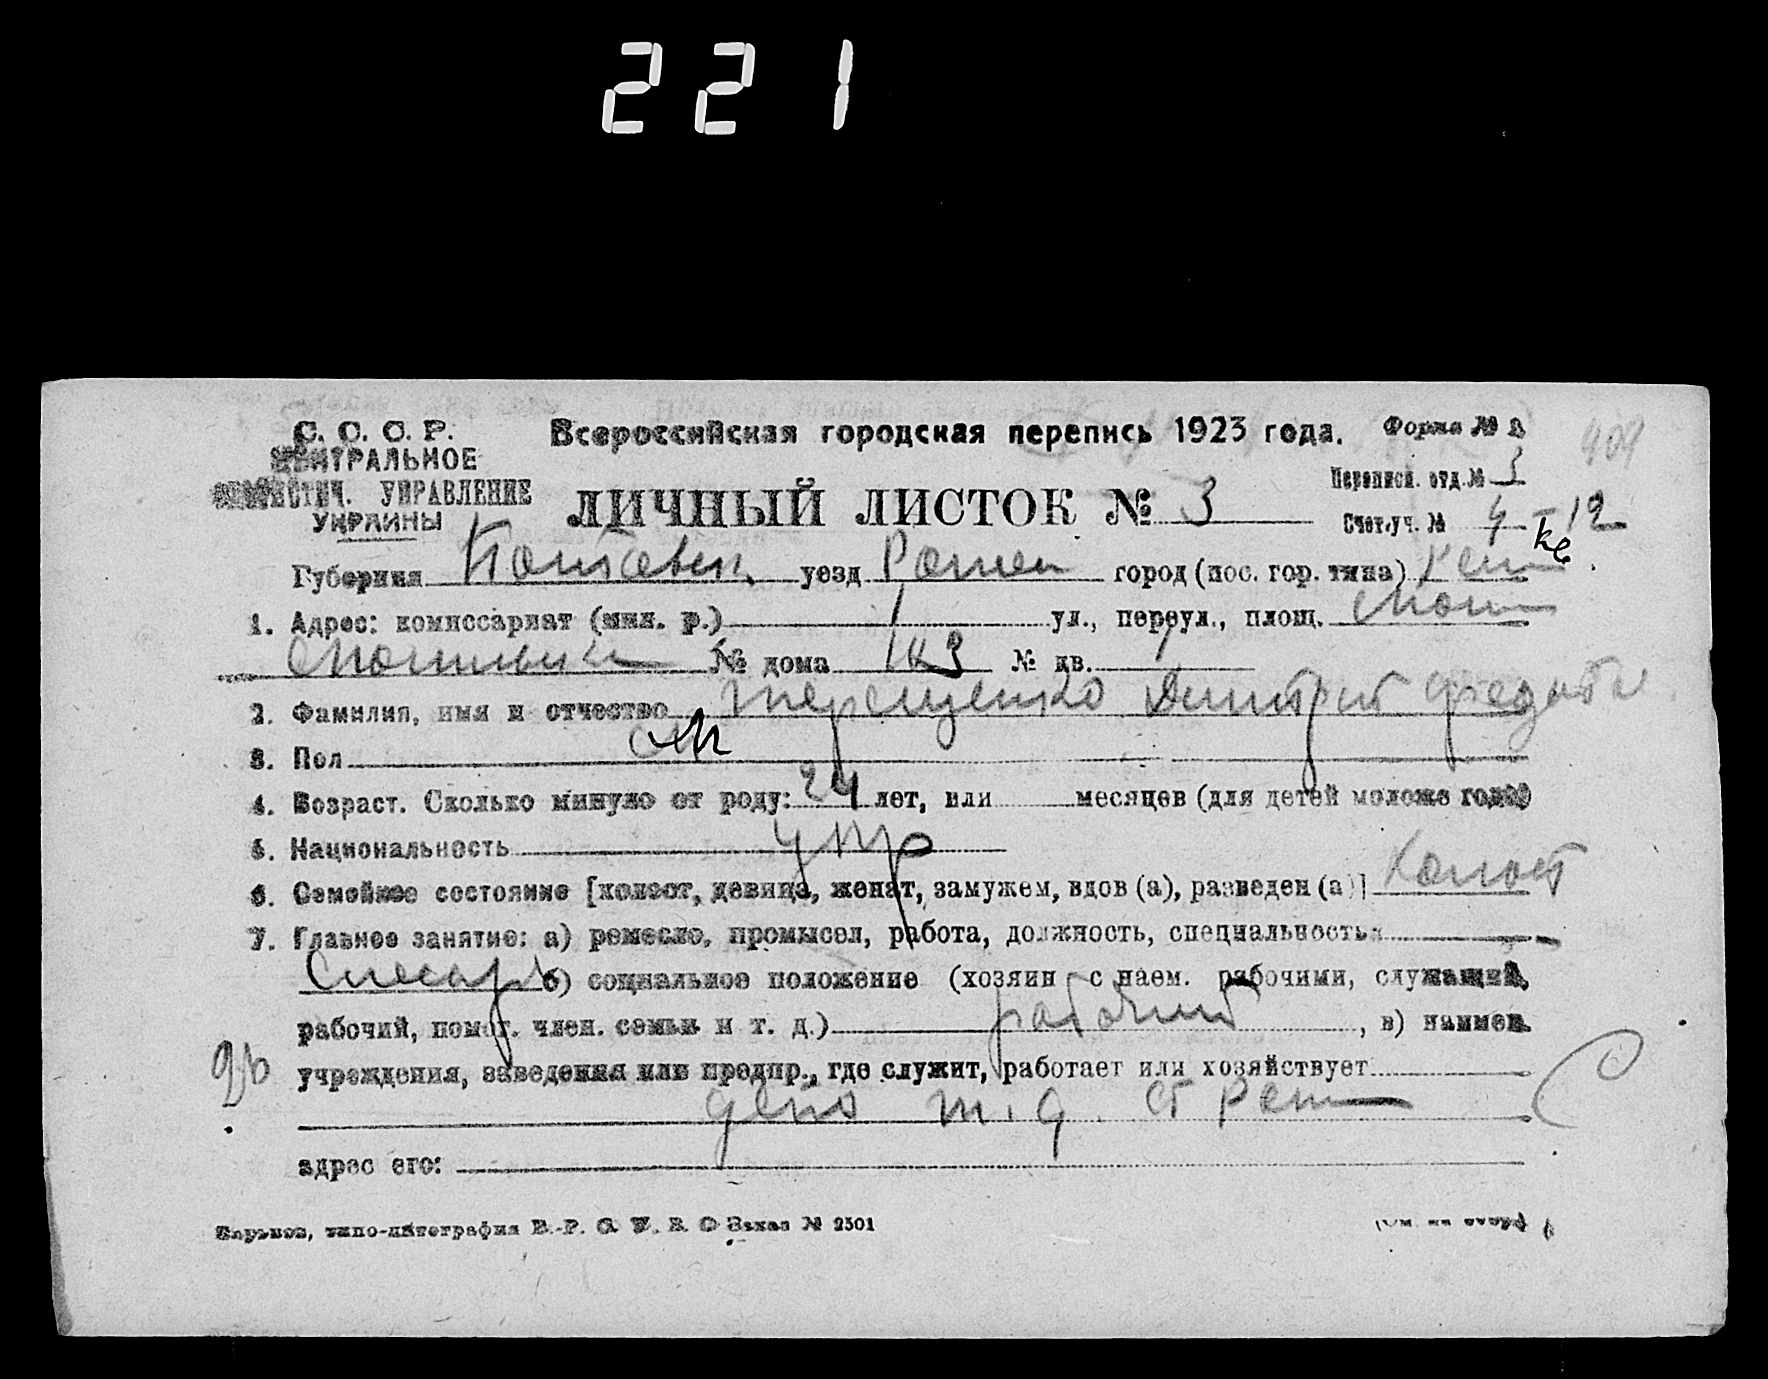 221
С. С. С. Р. Всероссийская городская перепись 1923 года. Форма №
ЦЕНТРАЛЬНОЕ
СТАТИСТИЧ. УПРАВЛЕНИЕ ЛИЧНЫЙ ЛИСТОК № 3 Переписн. отд. № 3
УКРАИНЫ Счет. уч. № 4 - 12
Губерния уезд Ромен город (пос. гор. типа)
1. Адрес: комиссариат (мил. р.) ул., переул., площ.
№ дома № кв.
2. Фамилия, имя и отчество Терещенко Дмитрий
3. Пол М
4. Возраст. Сколько минуло от роду: 24 лет, или месяцев (для детей моложе года)
5. Национальность укр
6. Семейное состояние [холост, девица, женат, замужем, вдов (а), разведен (а)] холост
7. Главное занятие: а) ремесло, промысел, работа, должность, специальность
Слесарь б) социальное положение (хозяин с наем. рабочими, служащий,
рабочий, помог. член. семьи и т. д.) рабочий , в) наимен.
учреждения, заведения или предпр., где служит, работает или хозяйствует
депо ст
адрес его:
Харьков, типо-литография Заказ № 2501